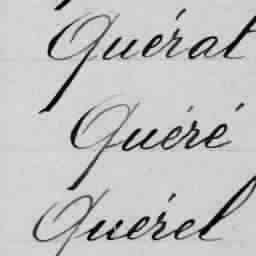 Quérat
Quéré
Quérel